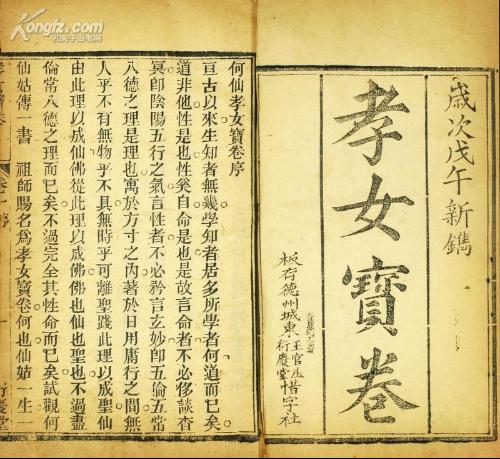 歲次戊午新鐫
孝女寶卷
板存德州城東王官庄
衍慶堂惜字社
何仙孝女寶卷序
亘古以來生知者無幾學知者居多所學者何道而已矣
道非他性是也性奚自命是也是故言命者不必侈談杳
冥卽陰陽五行之氣言性者不必矜言玄妙卽五倫五常
八德之理是理也寓於方寸之內著於日用庸行之間無
人乎不有無物乎不具無時乎可離聖踐此理以成聖仙
由此理以成仙佛從此理以成佛佛也仙也聖也不過盡
倫常八德之理而已矣不過完全其性命而已矣試觀何
仙姑傳一書 祖師賜名爲孝女寶卷何也仙姑一生一